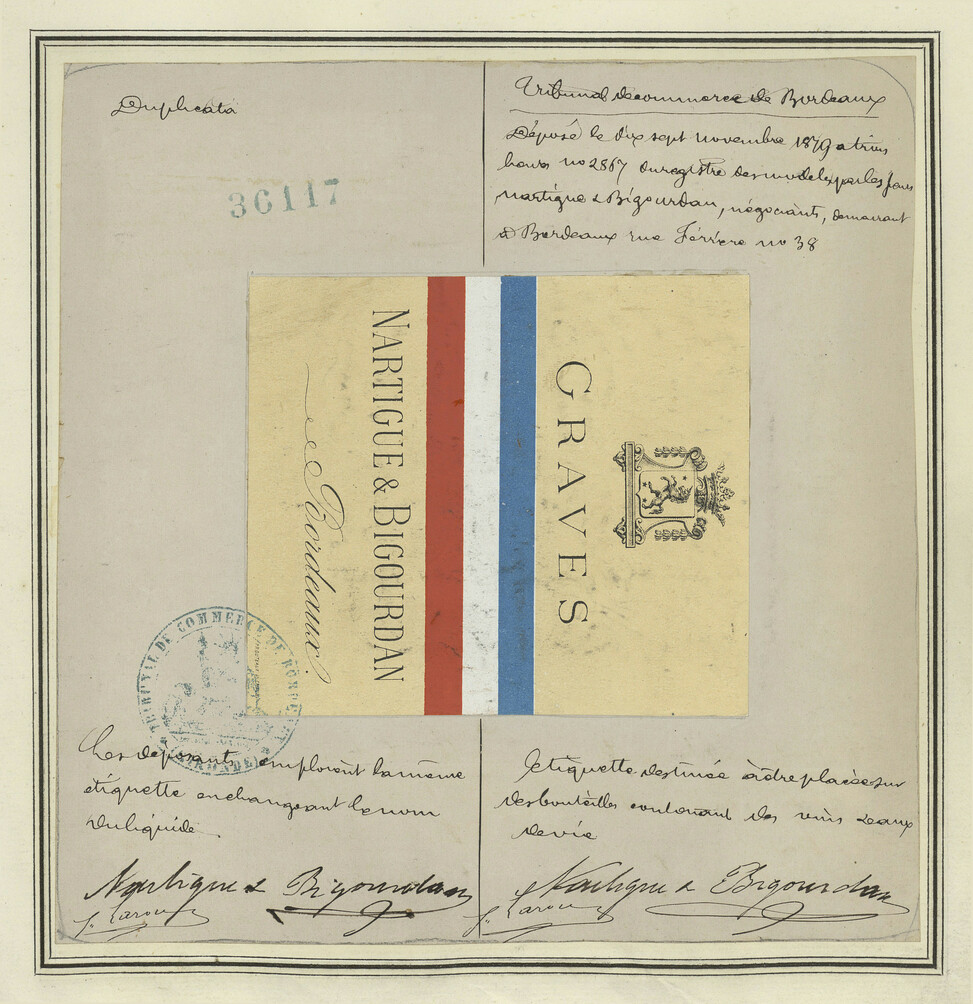 Duplicata
36117
Tribunal de commerce de Bordeaux
Déposé le dix sept novembre 1879 a trois
heures no 2867 du registre des modeles par les sieurs
Nartigue & Bigourdan, négociants, demeurant
à Bordeaux rue Férrère no 38
GRAVES
NARTIGUE & BIGOURDAN
Bordeaux
TRIBUNAL DE COMMERCE DE BORDEAUX
(GIRONDE)
Les déposants emploient la même
étiquette en changeant le nom
du liquide
Nartigue & Bigourdan
Etiquette destinée à être placée sur
des bouteilles contenant des vins & eaux
de vie
Nartigue & Bigourdan